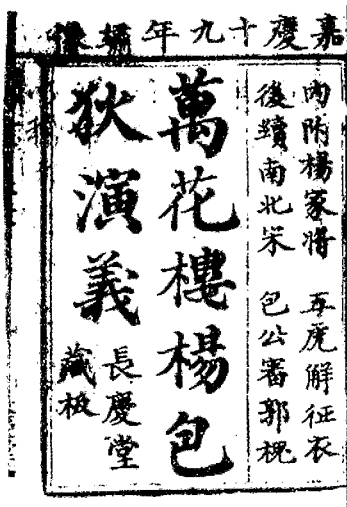 嘉慶十九年鐫
內附楊家將 五虎解征衣
後續南北宋 包公審郭槐
萬花樓楊包
狄演義
長慶堂
藏板